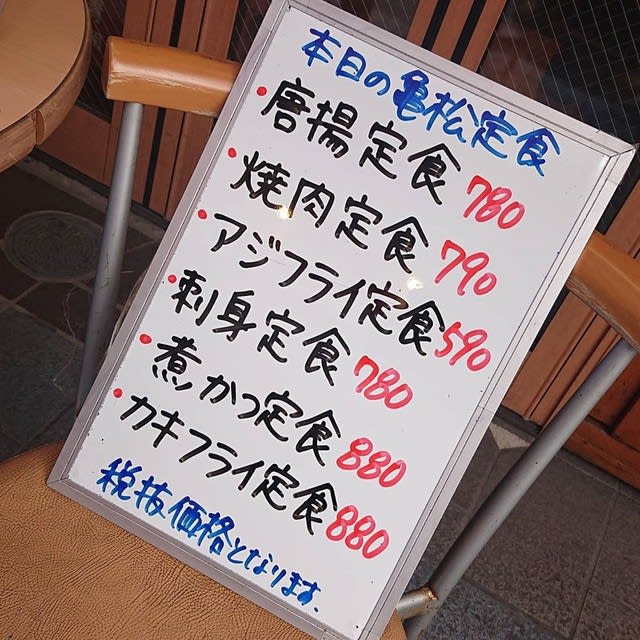 本日の亀松定食
・唐揚定食 780
・焼肉定食 790
・アジフライ定食 590
・刺身定食 780
・煮かつ定食 880
・カキフライ定食 880
税抜価格となります.